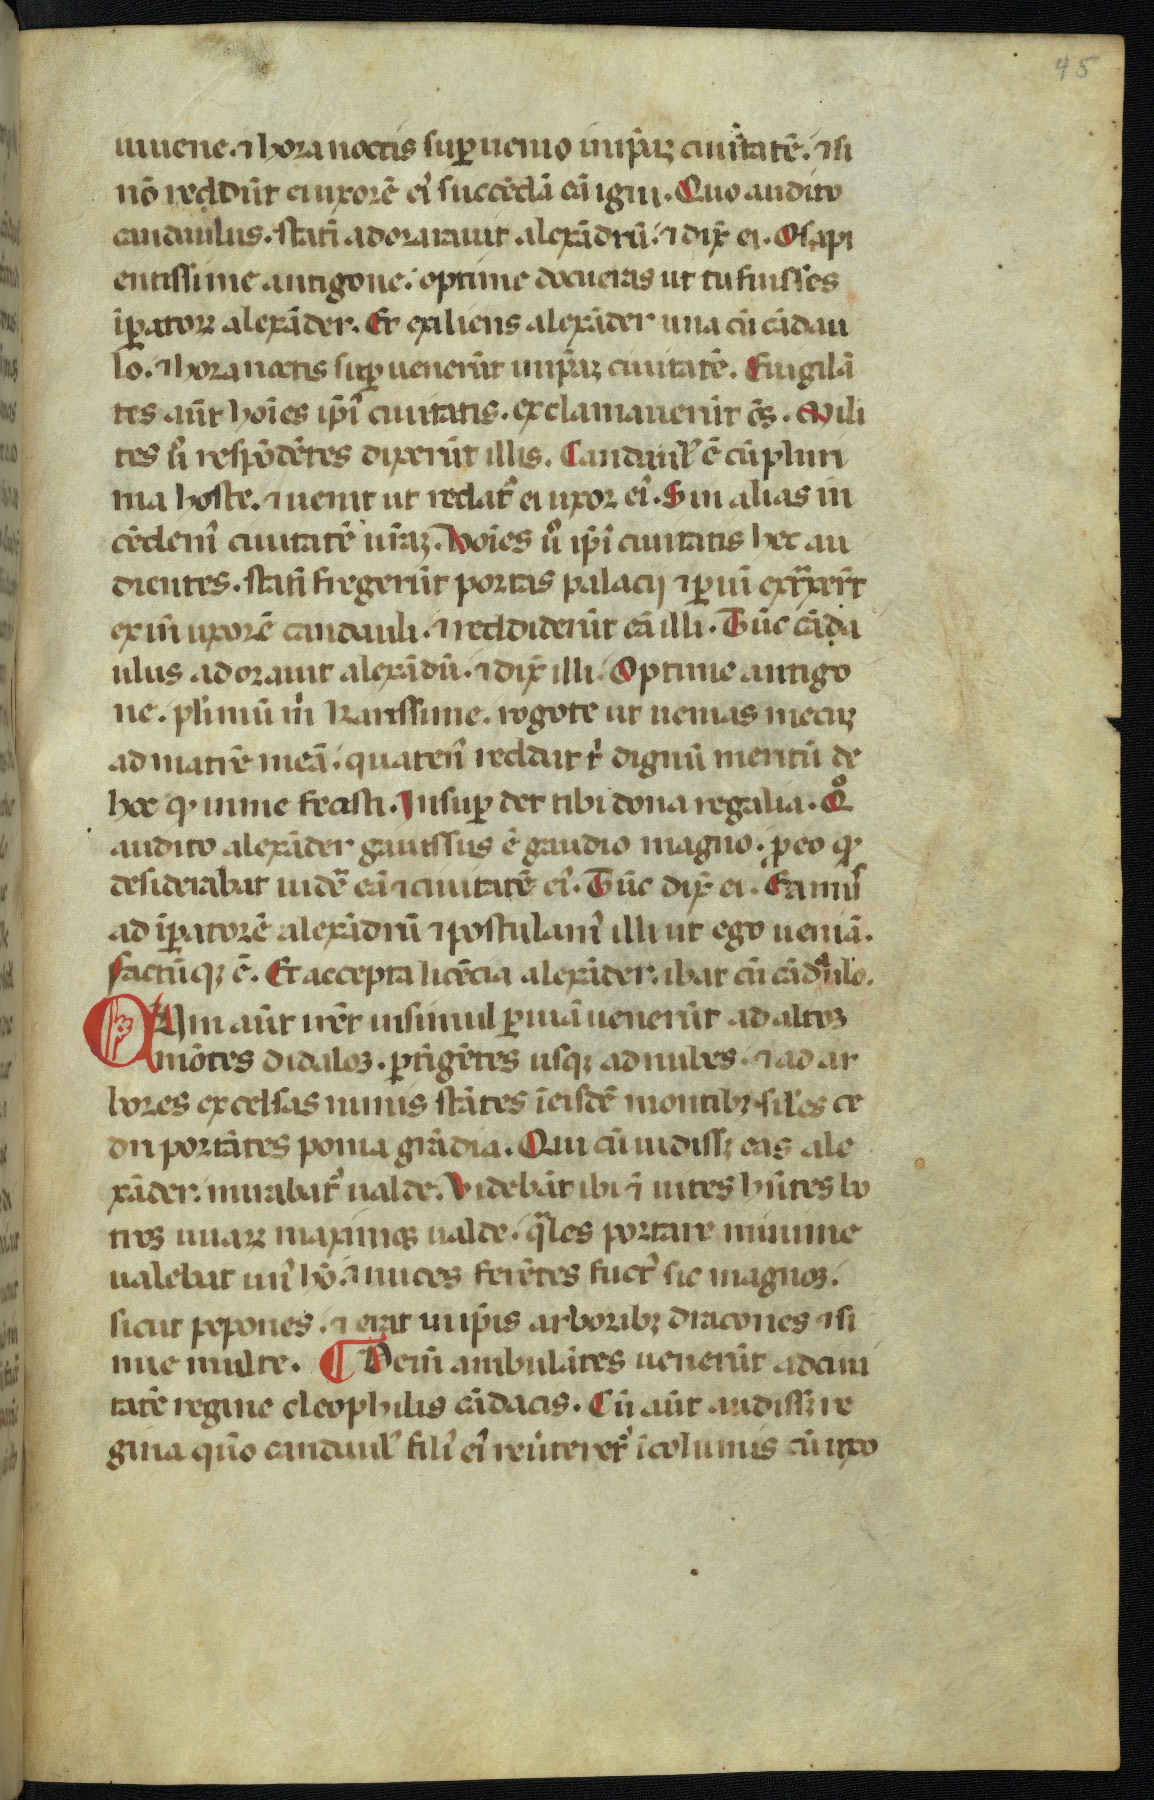 45
iuuene. ⁊ hora noctis suꝑuenio in ip̃aꝫ ciuitatẽ. ⁊ si
nõ reddũt ei uxorẽ ei᷒ succẽdã eã igni. Quo audito
candaulus. statĩ adorarauit alexãdrũ. ⁊ dix̃ ei. O sapi
entissime antigone. optime docueras ut tu fuisses
iꝑatoꝛ alexãder. Et exiliens alexãder una cũ cãdau
lo. ⁊ hora noctis suꝑuenerũt in ip̃aꝫ ciuitatẽ. Euigilã
tes aũt hoĩes ip̃i᷒ ciuitatis. exclamauerũt õs. Mili
tes ũ respõdẽtes dixerũt illis. Candaul᷒ ẽ cũ pluri
ma hoste. ⁊ uenit ut reddat᷒ ei uxor ei᷒. Sin alias in
cẽdem᷒ ciuitatẽ ur̃aꝫ. Hoĩes ũ ip̃i᷒ ciuitatis hec au
dientes. statĩ fregerũt portas palacij ⁊ ꝑ uĩ ext̃xer̃t
exiñ uxorẽ candauli. ⁊ reddiderũt eã illi. Tũc cãda
ulus adorauit alexãdũ. ⁊ dix̃ illi. Optime antigo
ne. pl᷒imũ m̃ karissime. rogo te ut uenias mecuꝫ
ad matrẽ meã. quaten᷒ reddat t᷒ dignũ meritũ de
hoc ꝙ in me fecisti. Insuꝑ det tibi dona regalia. Qͦ
audito alexãder gauissus ẽ gaudio magno. ꝓ eo ꝙ
desiderabat uidẽ eã ⁊ ciuitatẽ ei᷒. Tũc dix̃ ei. Eam᷒
ad iꝑatorẽ alexãdrũ ⁊ postulam᷒ illi ut ego ueniã.
factũqꝫ ẽ. Et accepta licẽcia alexãder. ibat cũ cãdaulo.
Qum aũt irẽt insimul ꝑ uiã uenerũt ad altos
mõtes didalos. ꝑtĩgẽtes usqꝫ ad nubes. ⁊ ad ar
bores excelsas nimis stãtes ĩ eisdẽ montibꝫ. sil᷒es ce
dri portãtes poma grãdia. Qui cũ uidissꝫ eas ale
xãder. mirabat᷒ ualde. Videbãt ibi ⁊ uites hñtes bo
tros uuaꝝ maximos ualde. q̃les portare minime
ualebat un᷒ hõ. ⁊ nuces ferẽtes fuct᷒ sic magnos.
sicut pepones. ⁊ erãt in ip̃is arboribꝫ dracones ⁊ si
mie multe. Deiñ ambulãtes uenerũt ad ciui
tatẽ regine cleophilis cãdacis. Cũ aũt audissꝫ re
gina quõ candaul᷒ fili᷒ ei᷒ reũteret᷒ ĩcolumis cũ uxo